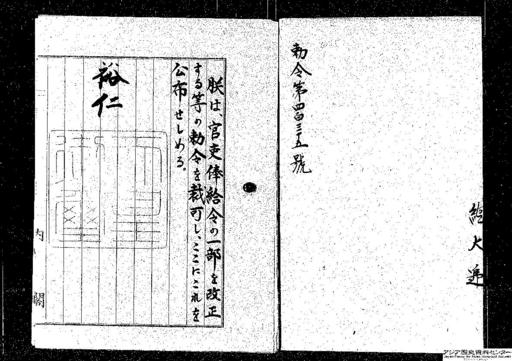 勅令第四百三十五號
朕は、官吏俸給令の一部を改正
する等の勅令を裁可し、ここにこれを
公布せしめる。
裕仁
内
閣
アジア歴史資料センター